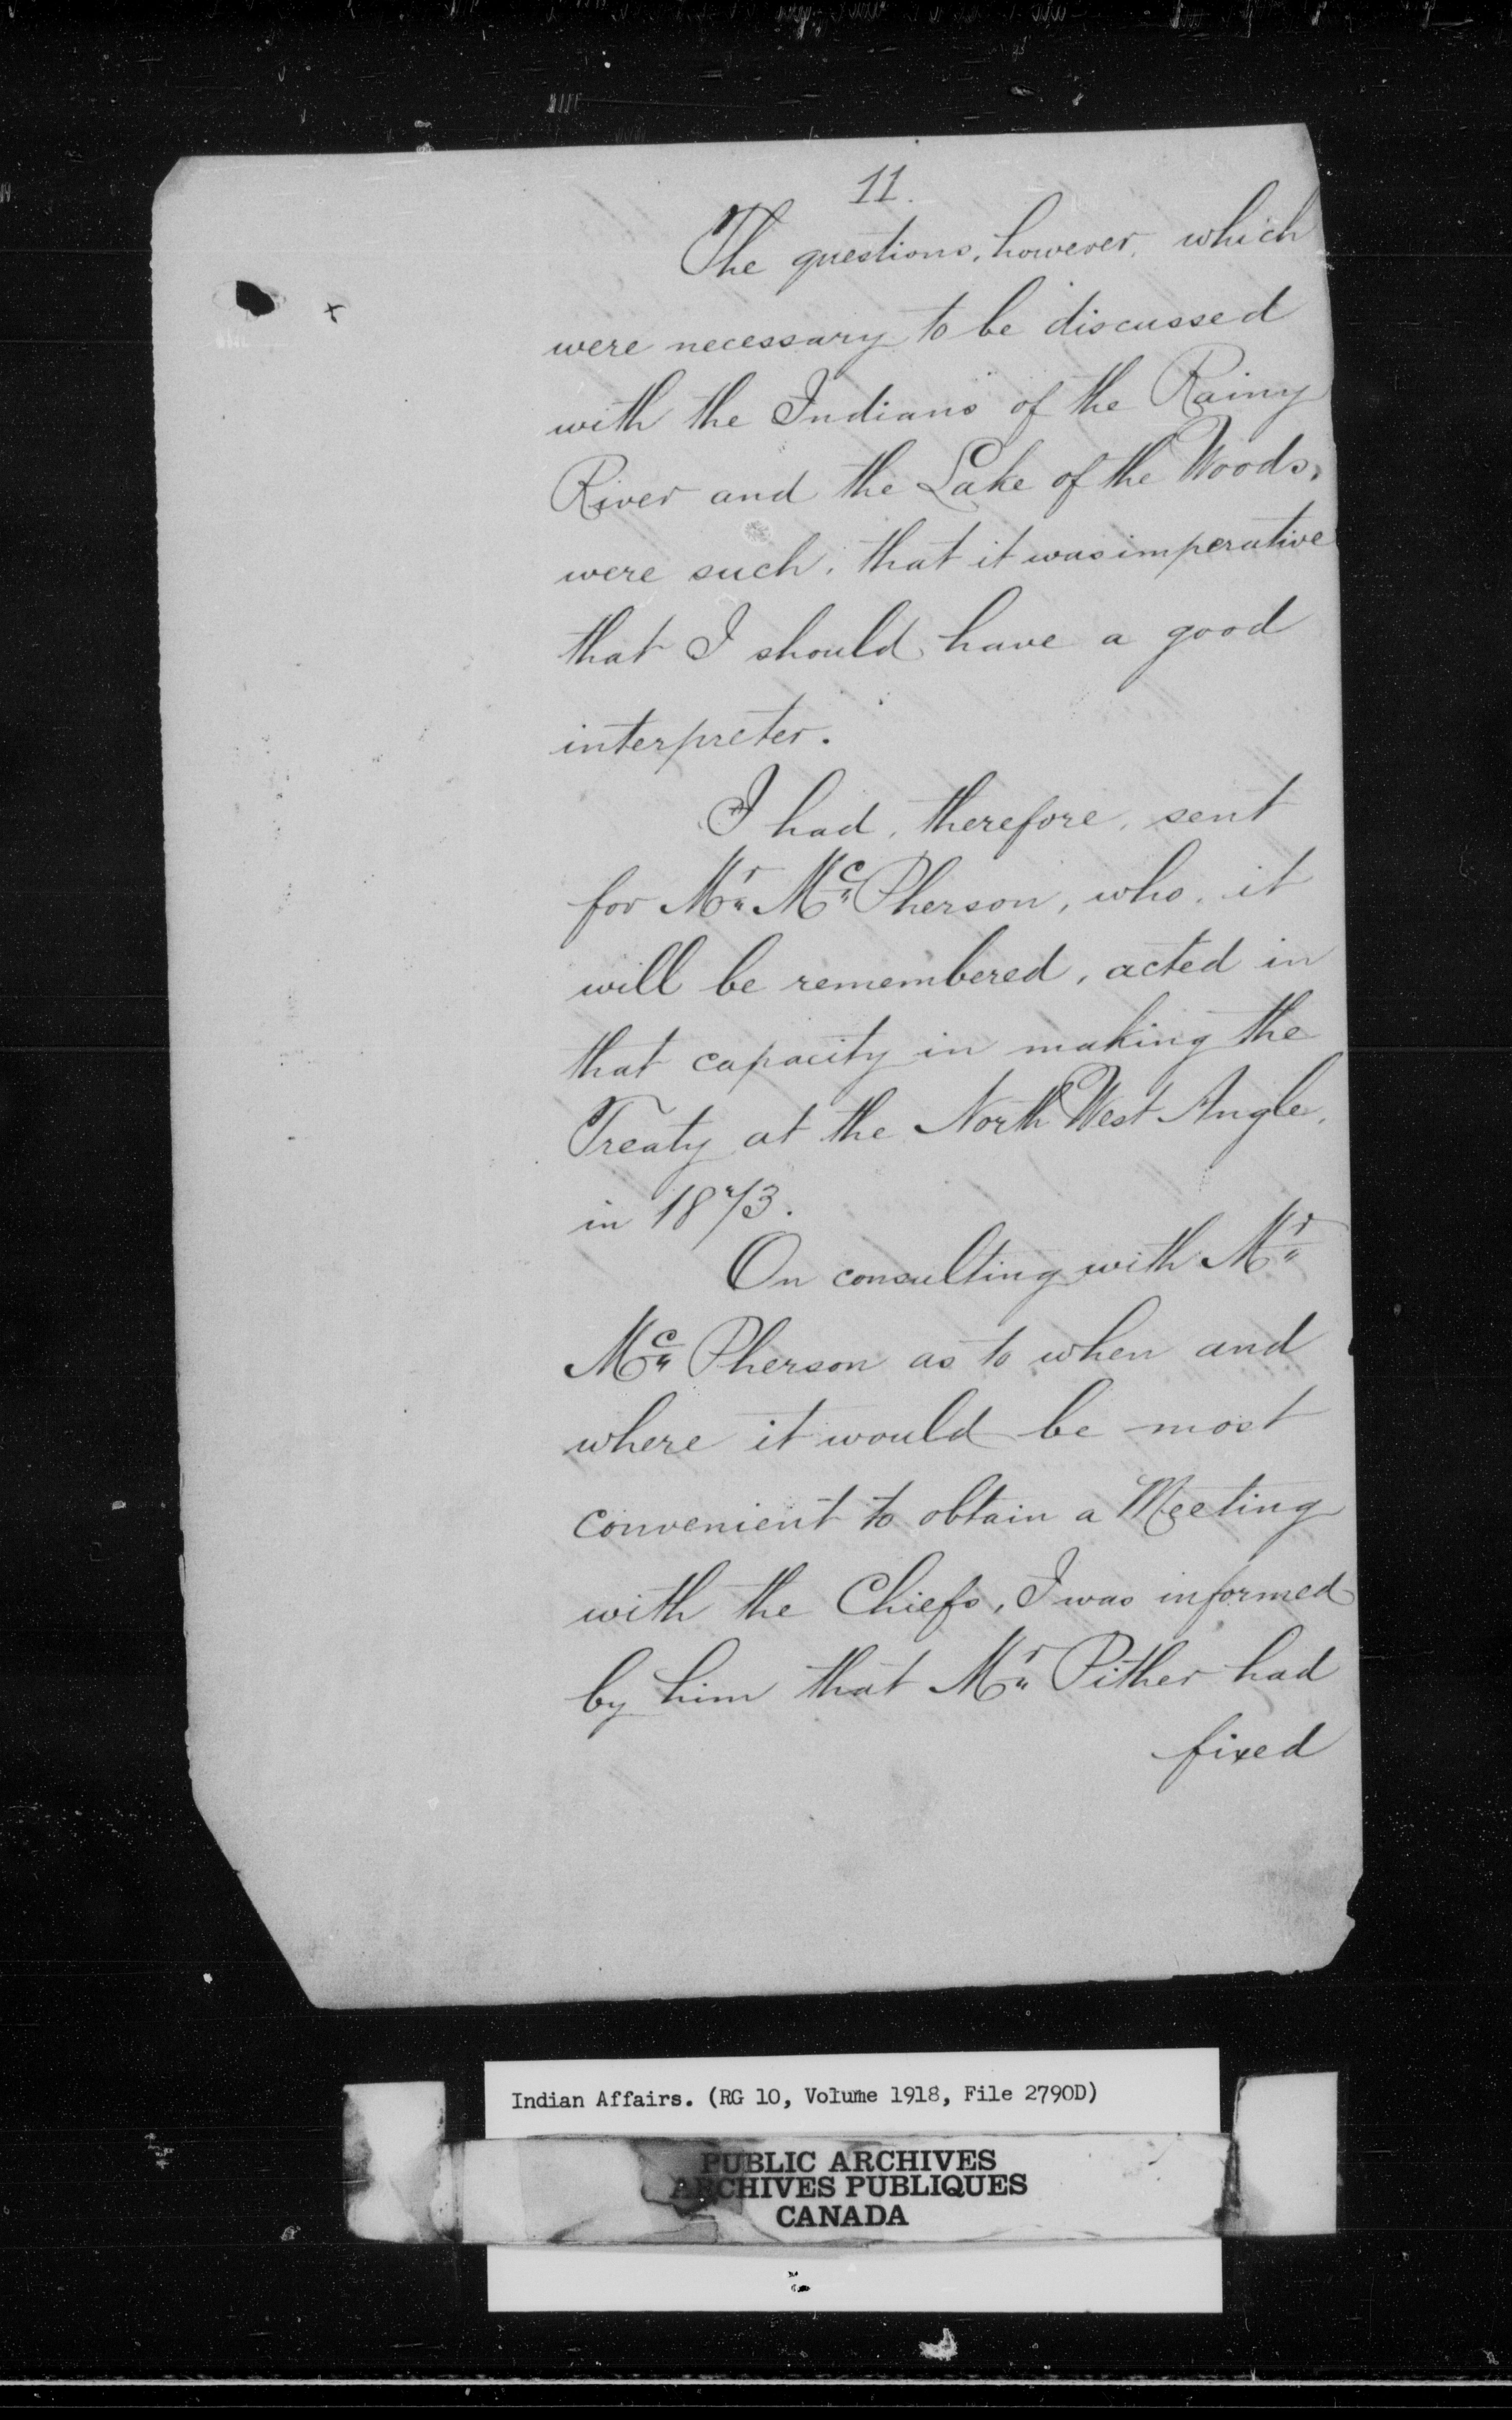 11.
The questions, however, which
were necessary to be discussed
with the Indians of the Rainy
River and the Lake of the Woods,
were such, that it was imperative
that I should have a good
interpreter.
I had, therefore, sent
for Mr. McPherson, who, it
will be remembered, acted in
that capacity in making the
Treaty at the North West Angle,
in 1873.
On consulting with Mr.
McPherson as to when and
where it would be most
convenient to obtain a Meeting
with the Chiefs, I was informed
by him that Mr. Pither had
fixed
Indian Affairs. (RG 10, Volume 1918, File 2790D)
PUBLIC ARCHIVES
ARCHIVES PUBLIQUES
CANADA